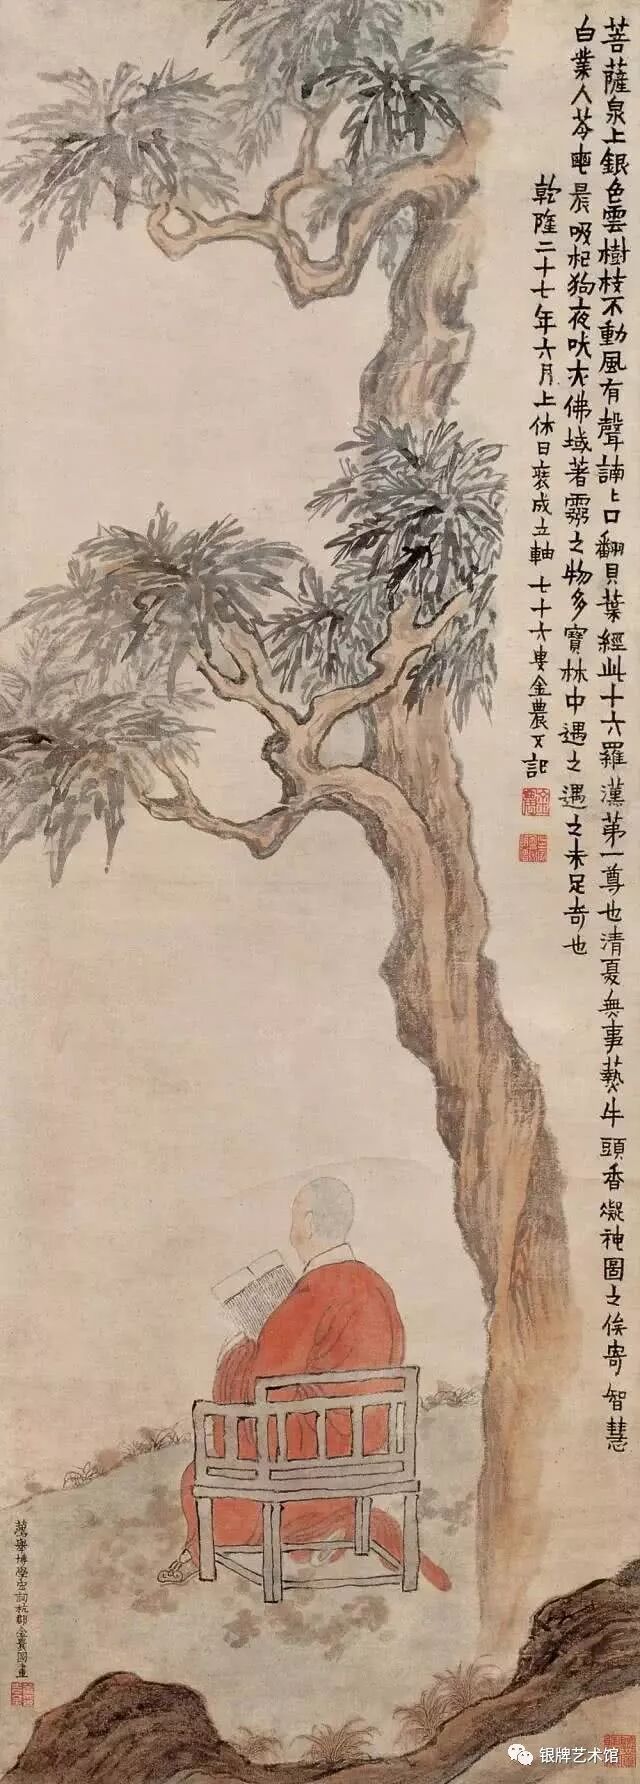 菩薩泉上銀色雲樹枝不動風有聲諵〻口翻貝葉經此十六羅漢第一尊也清夏無事爇牛頭香凝神圖之俟寄智慧
白業人苓庵晨吸杞狗夜吠大佛域著靈之物多寶林中遇之遇之未足奇也
乾隆二十七年六月上休日裝成立軸七十六叟金農又記
薦舉博學宏詞杭郡金農圖畫
银牌艺术馆